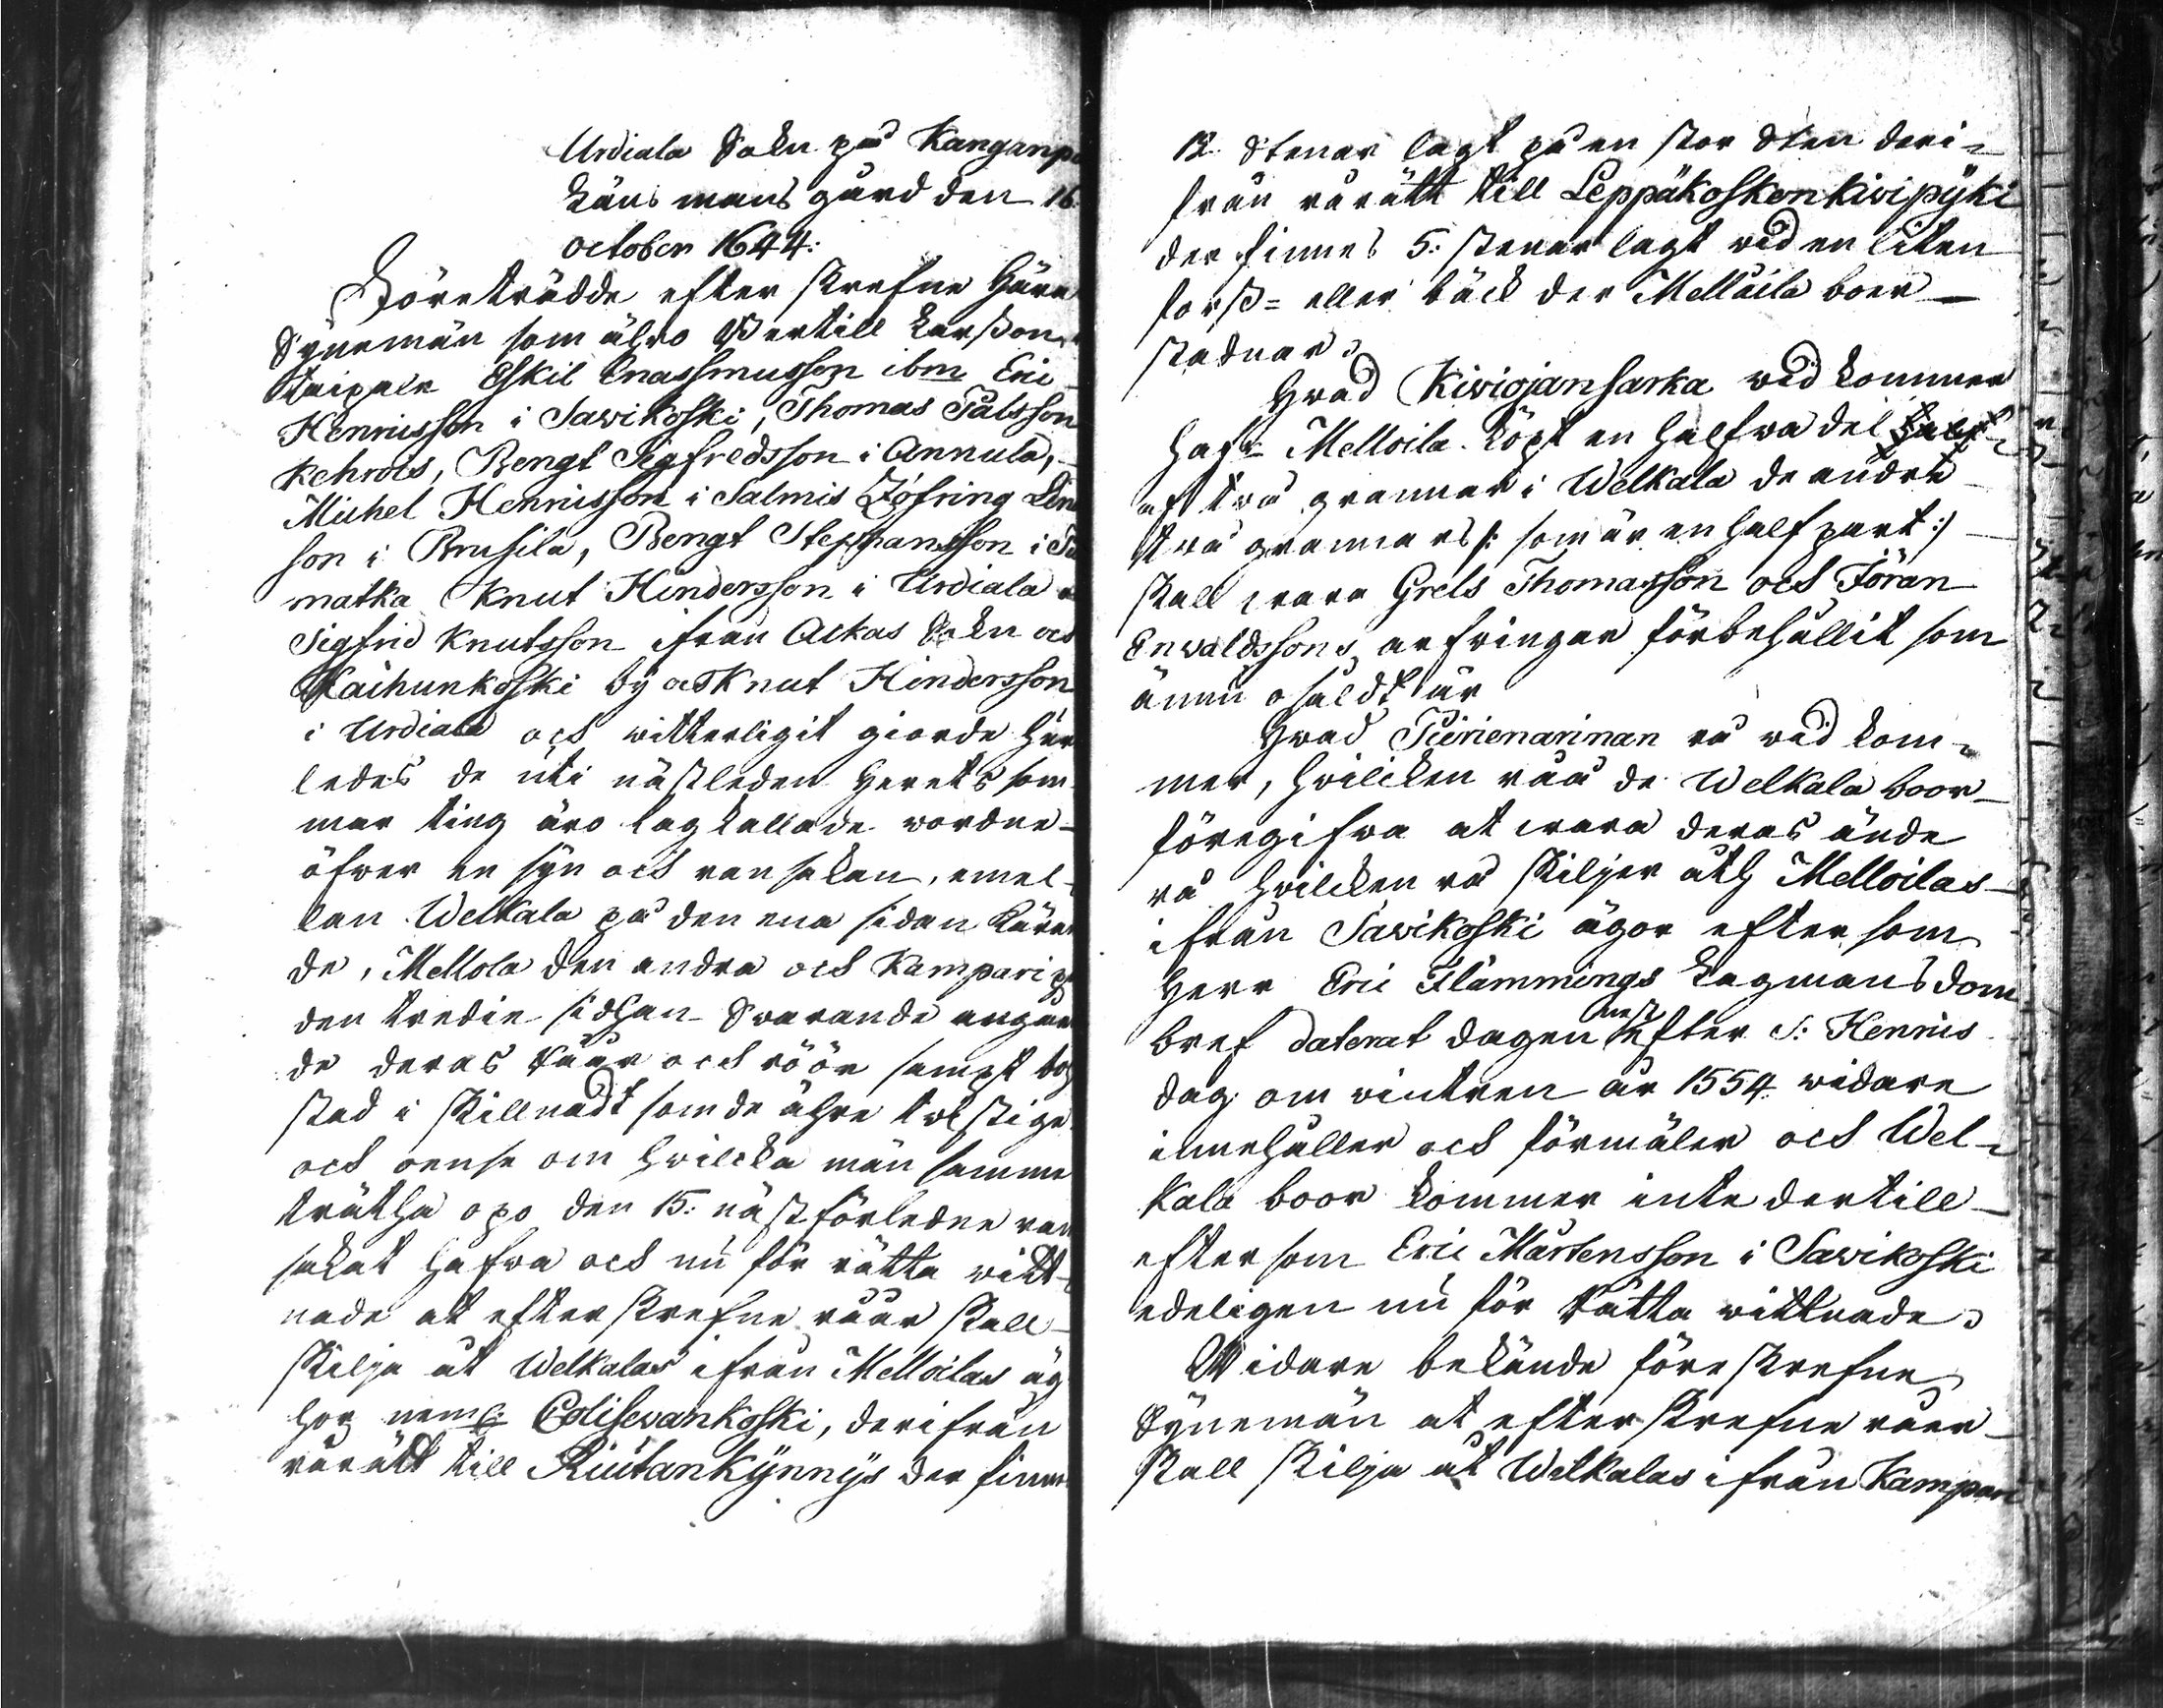 Urdiala Sokn på Kanganpä
Läns mans gård den 16
october 1644:
Företrädde efter skrefne Hära
Synemän som ähro Bertill Larsson
Taipale Eskil Erassmusson ibm Eric
Henricsson i Sawikoski, Thomas Pålsson
Kehrois, Bengt Sigfredsson i Annula,
Michel Henricsson i Salmis Jöfring
son i Brusila, Bengt Stephansson i
matka Knut Hindersson i Urdiala
Sigfrid Knutsson ifrån Ackas Sokn och
Kaihunkoski by och Knut Hindersson
i Urdiala och witterligit giorde hur
ledes de uti nästleden Herets som-
mar ting äro lag kallade wordne
öfwer en syn och ransakan, emel-
lan Welkala på den ena sidan Käran
de, Mellola den andra och Kampari på
den tredie sidhan Swarande angåen
de deras råår och röör sampt bo
stad i skillnadt som de ähre twistige
och oense om hwilcka män samme
trätha opo den 15: näst förledne ran
sakat hafwa och nu för rätta witt-
nade at efter skrefne råår skall
skilja åt Welkalas ifrån Melloilas äg
hor neml: Edisewankoski, derifrån
rårätt till Kiutankynnys der finnes
12 Stenar lagt på en stor Sten deri-
från rårätt till Leppäkoskenkiwipyki
der finnes 5: stenar lagt wid en liten
forss= eller bäck der Melloila boer
stadnar.
Hwad Kiwiojansarka wid kommer
haft Melloila köpt en halfwa del
af twå grannar i Welkala de andre
twå grannars /: som är en half part :/
skall wara Grels Thomasson och Jöran
Enwaldssons arfwingar förbehållit som
ännu osåldt är
Hwad Piirienarinan rå wid kom-
mer, hwilcken råå de Welkala boor
föregifwa at wara deras ände
rå hwilcken rå skiljer åth Melloilas
ifrån Sawikoski ägor efter som
Herr Eric Flämmings Lagmans dom
bref daterat dagen näst efter S: Henrics
dag om wintren år 1554 widare
innehåller och förmäler och Wel-
kala boor kommer inte dertill
efter som Eric Mårtensson i Sawikoski
edeligen nu för Rätta wittnade.
Widare bekände föreskrefne
Synemän at efter skrefne råer
skall skilja åt Welkalas ifrån Kampari